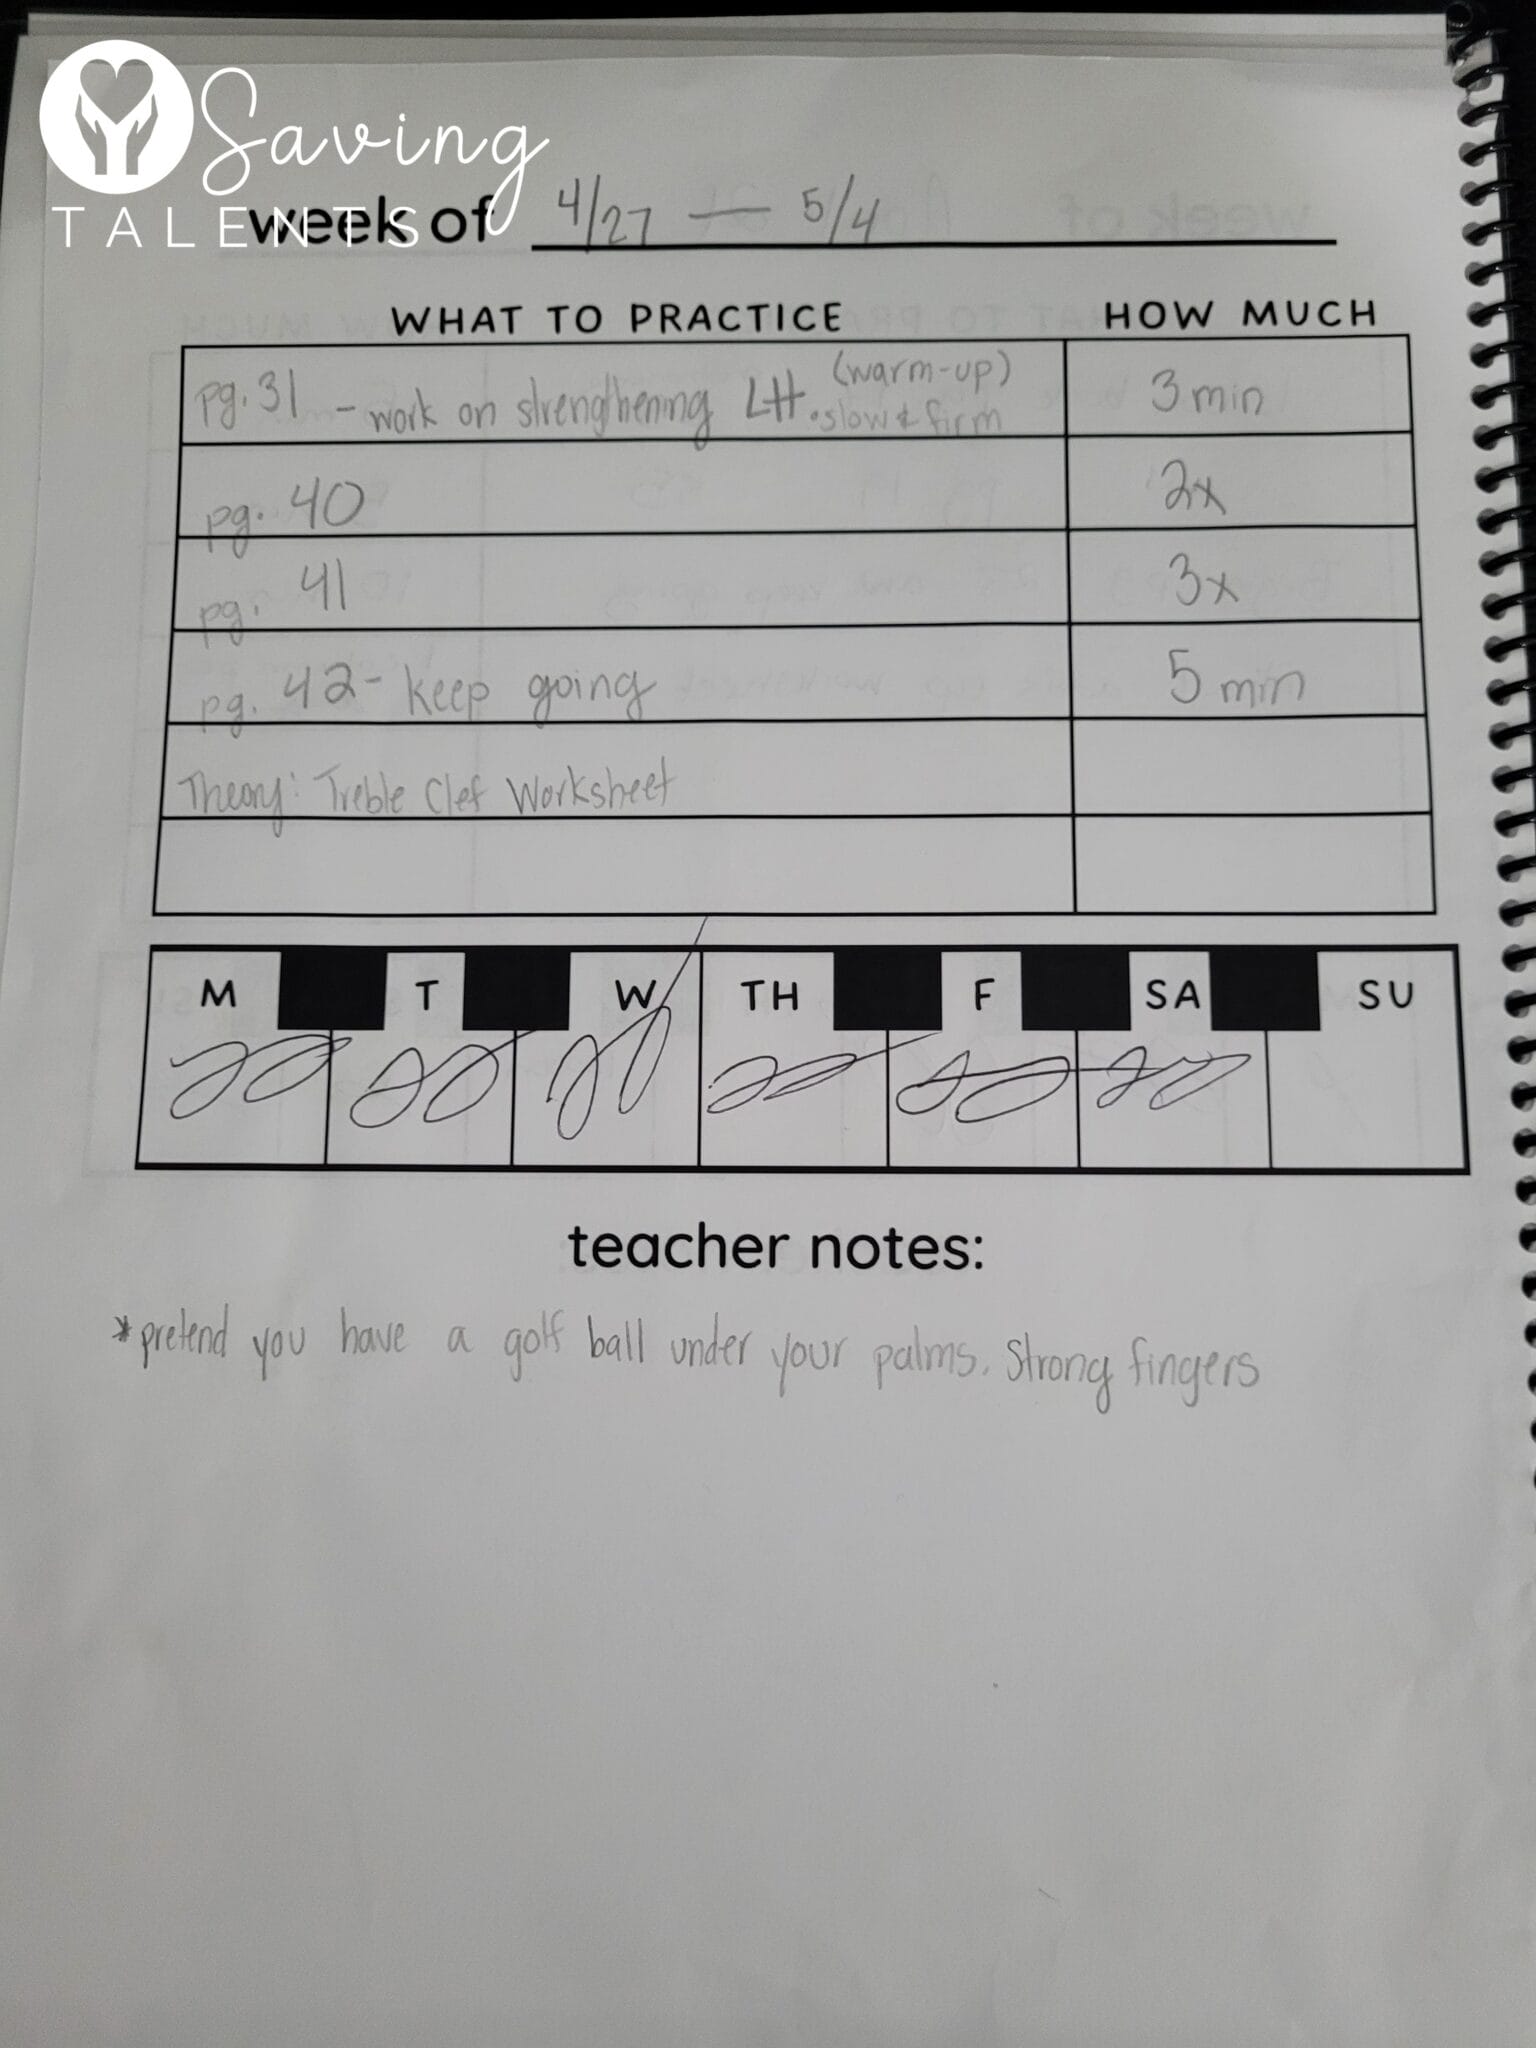 Saving
TALENTS
week of 4/27 — 5/4
WHAT TO PRACTICE HOW MUCH
pg. 31 - work on strengthening LH. (warm-up) •slow & firm 3 min
pg. 40 2x
pg. 41 3x
pg. 42 - keep going 5 min
Theory: Treble Clef Worksheet
M T W TH F SA SU
teacher notes:
*pretend you have a golf ball under your palms. Strong fingers